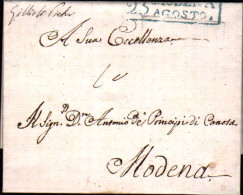 MODENA
25 AGOSTO.
A Sua Eccellenza
Il Sigr. Dn. Antonio de' Principi di Canosa
Modena